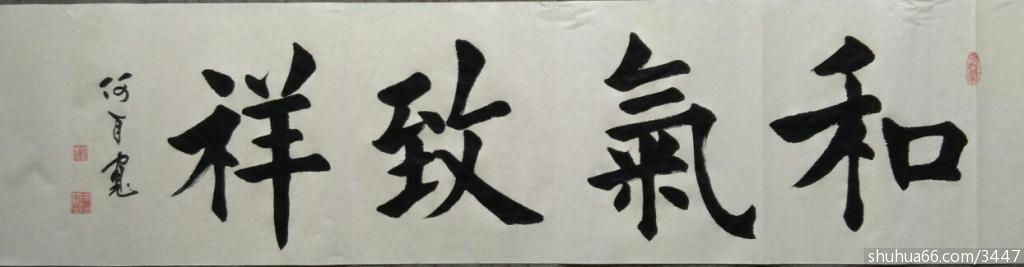 和氣致祥
shuhua66.com/3447